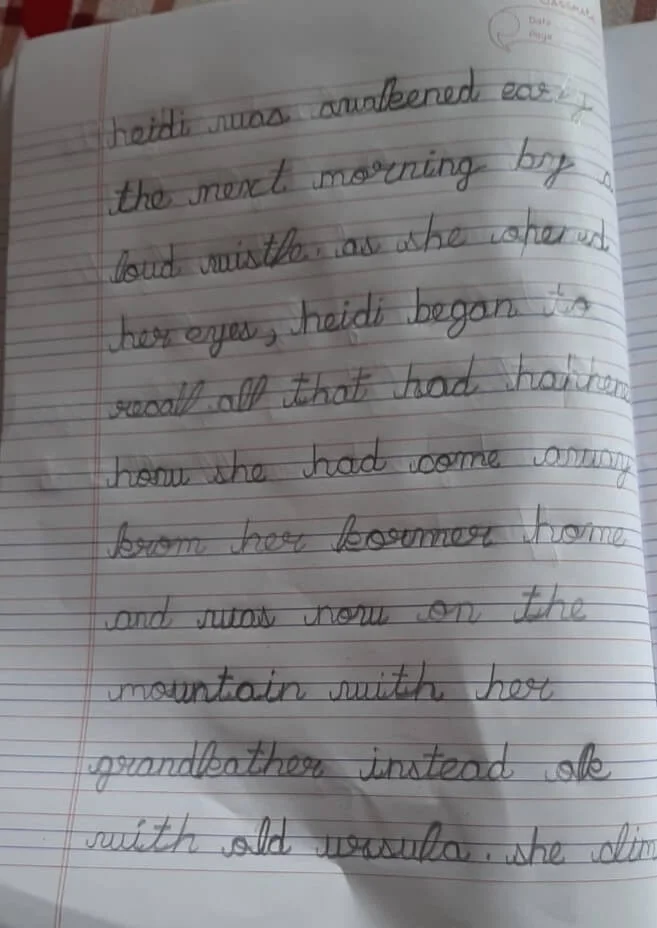 CLASSMATE
Date
Page
heidi was awakened early
the next morning by a
loud wistle. as she opened
her eyes, heidi began to
recall all that had happene
how she had come away
from her former home
and was now on the
mountain with her
grandfather instead of
with old ursula. she clim